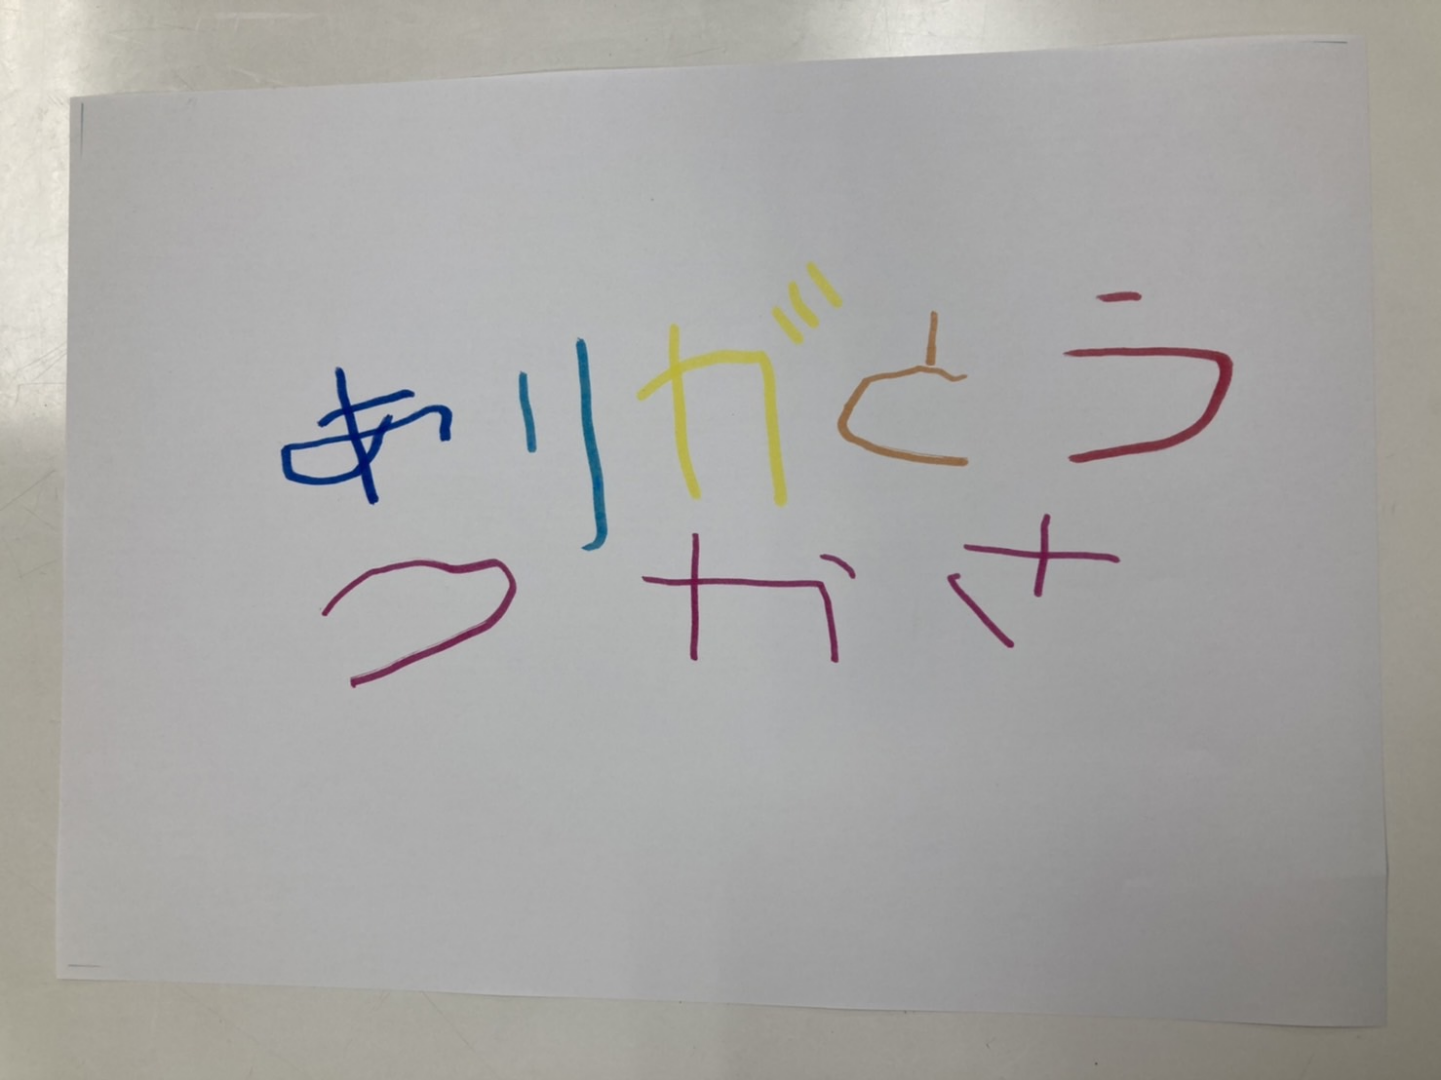 ありがとう
つかさ